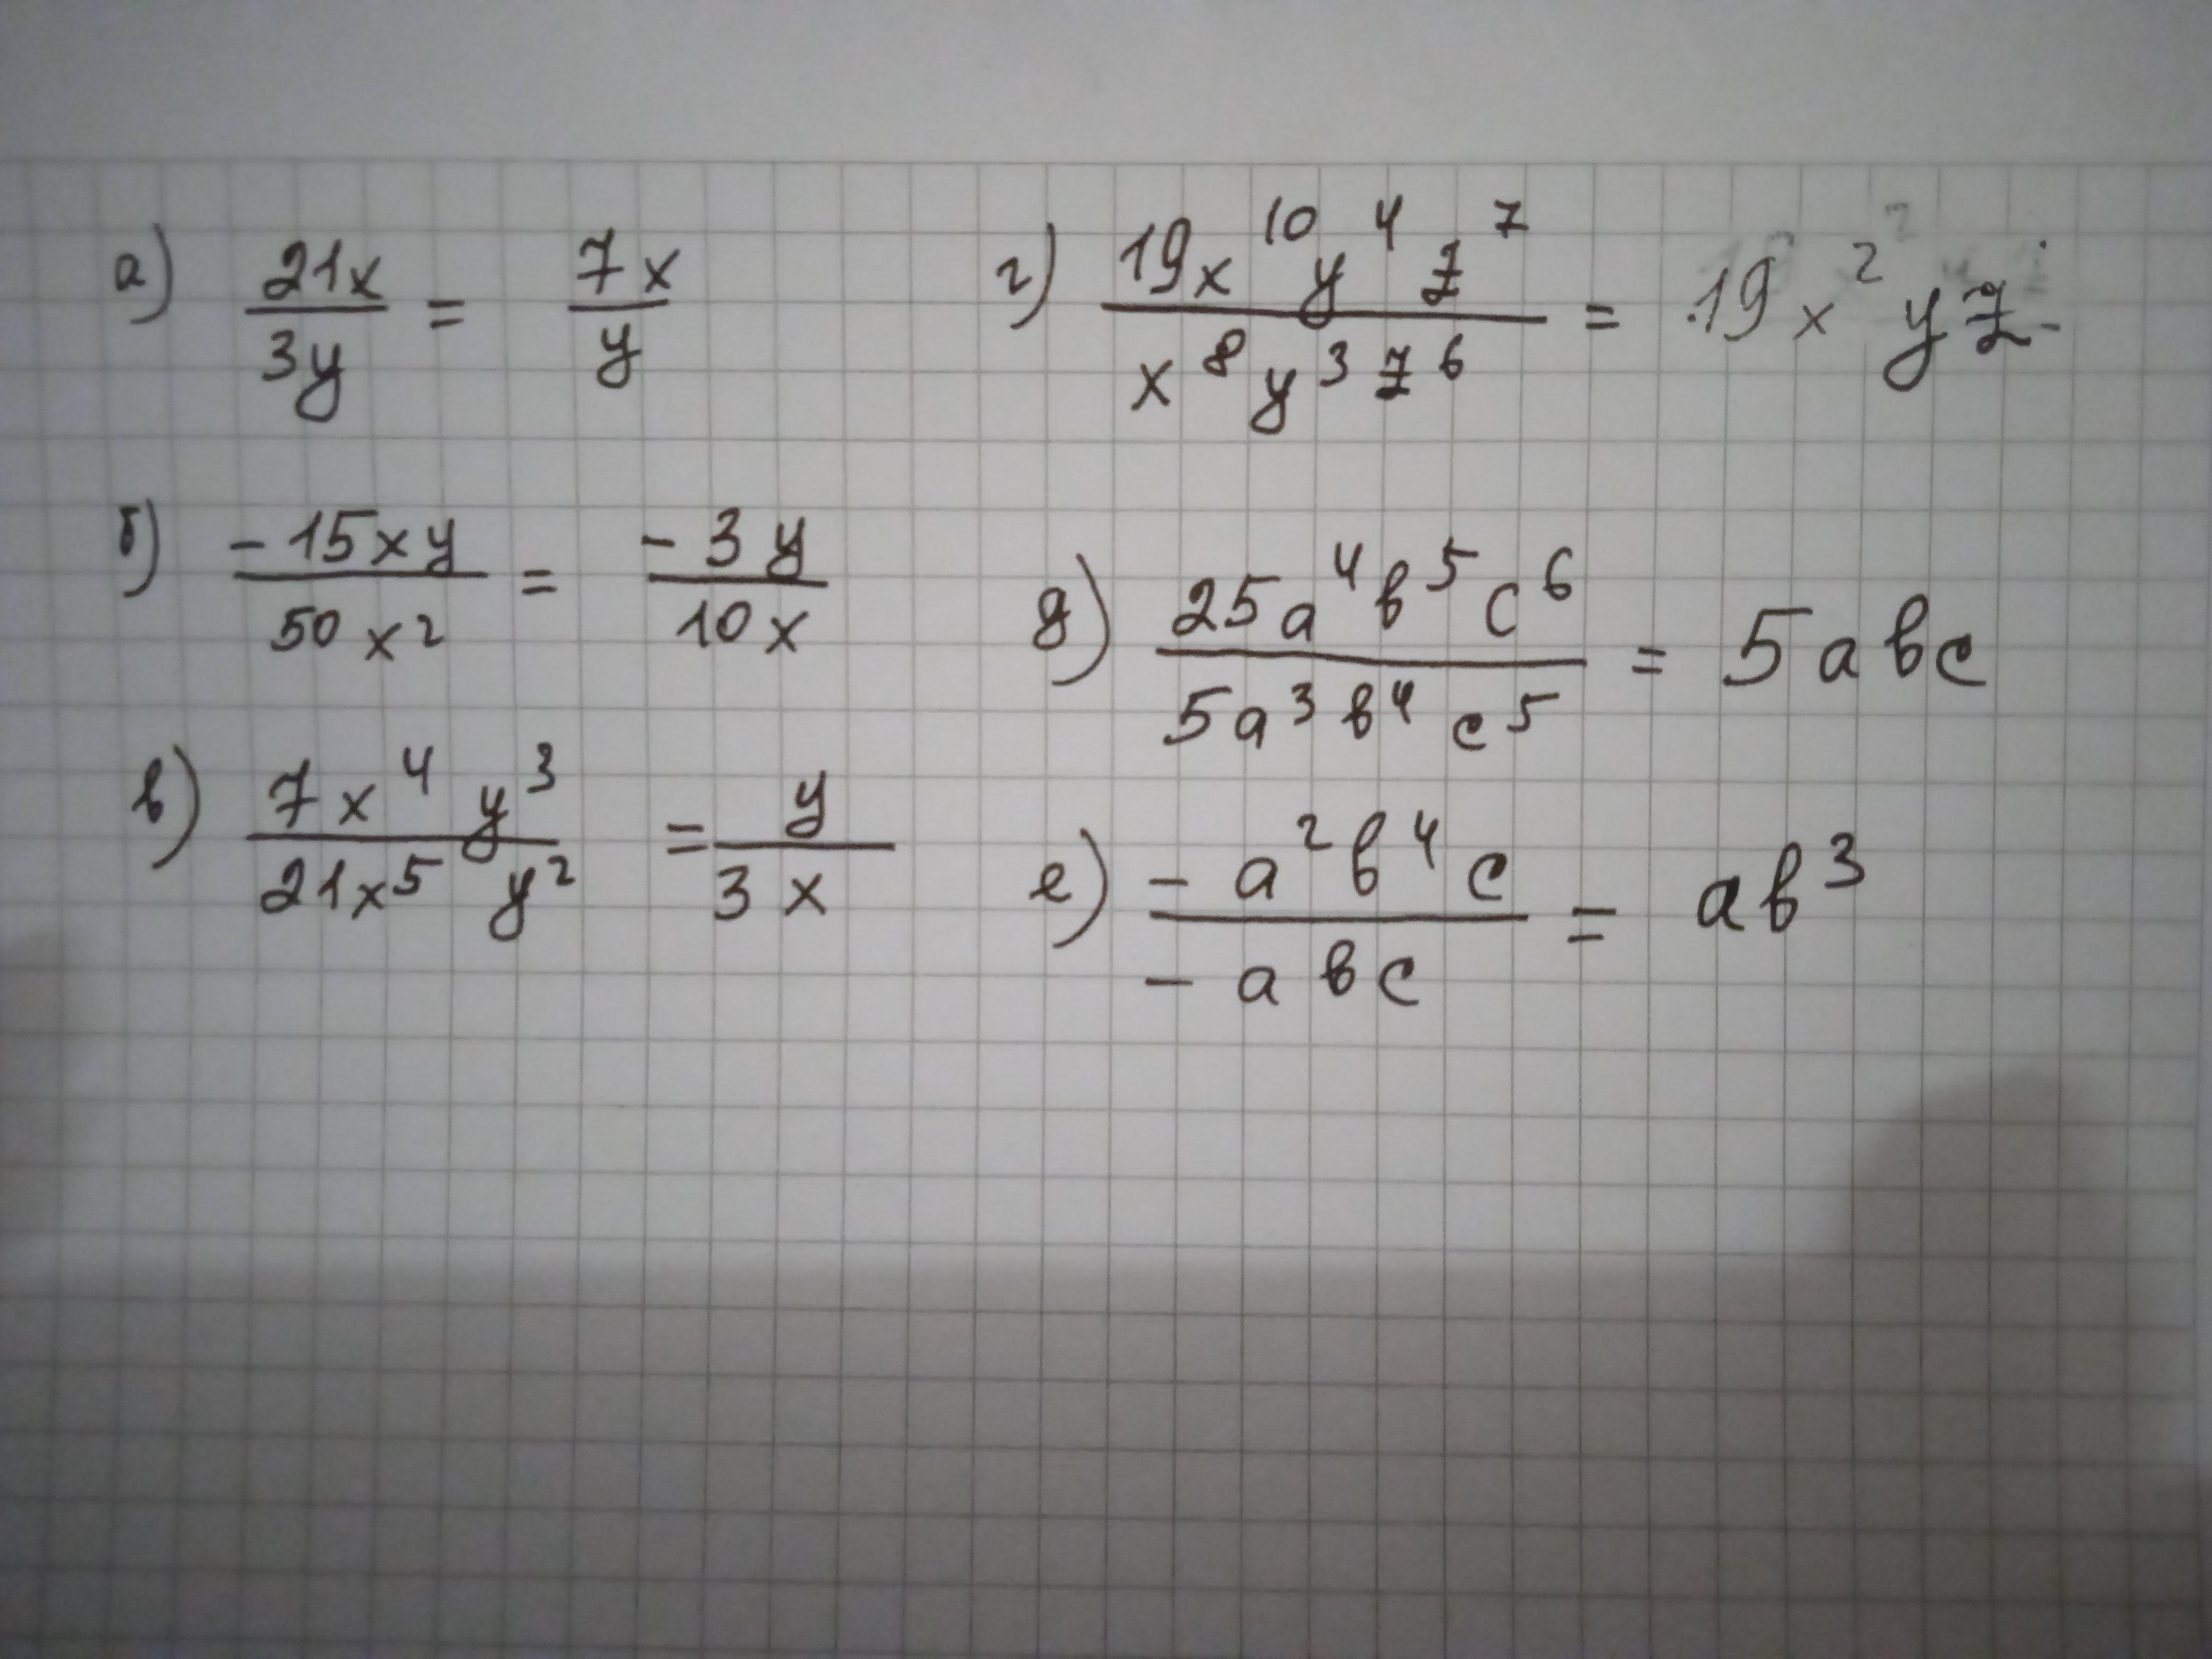 а) 21x/3y = 7x/y
б) -15xy/50x² = -3y/10x
в) 7x⁴y³/21x⁵y² = y/3x
г) 19x¹⁰y⁴z⁷/x⁸y³z⁶ = 19x²yz
д) 25a⁴b⁵c⁶/5a³b⁴c⁵ = 5abc
е) -a²b⁴c/-abc = ab³